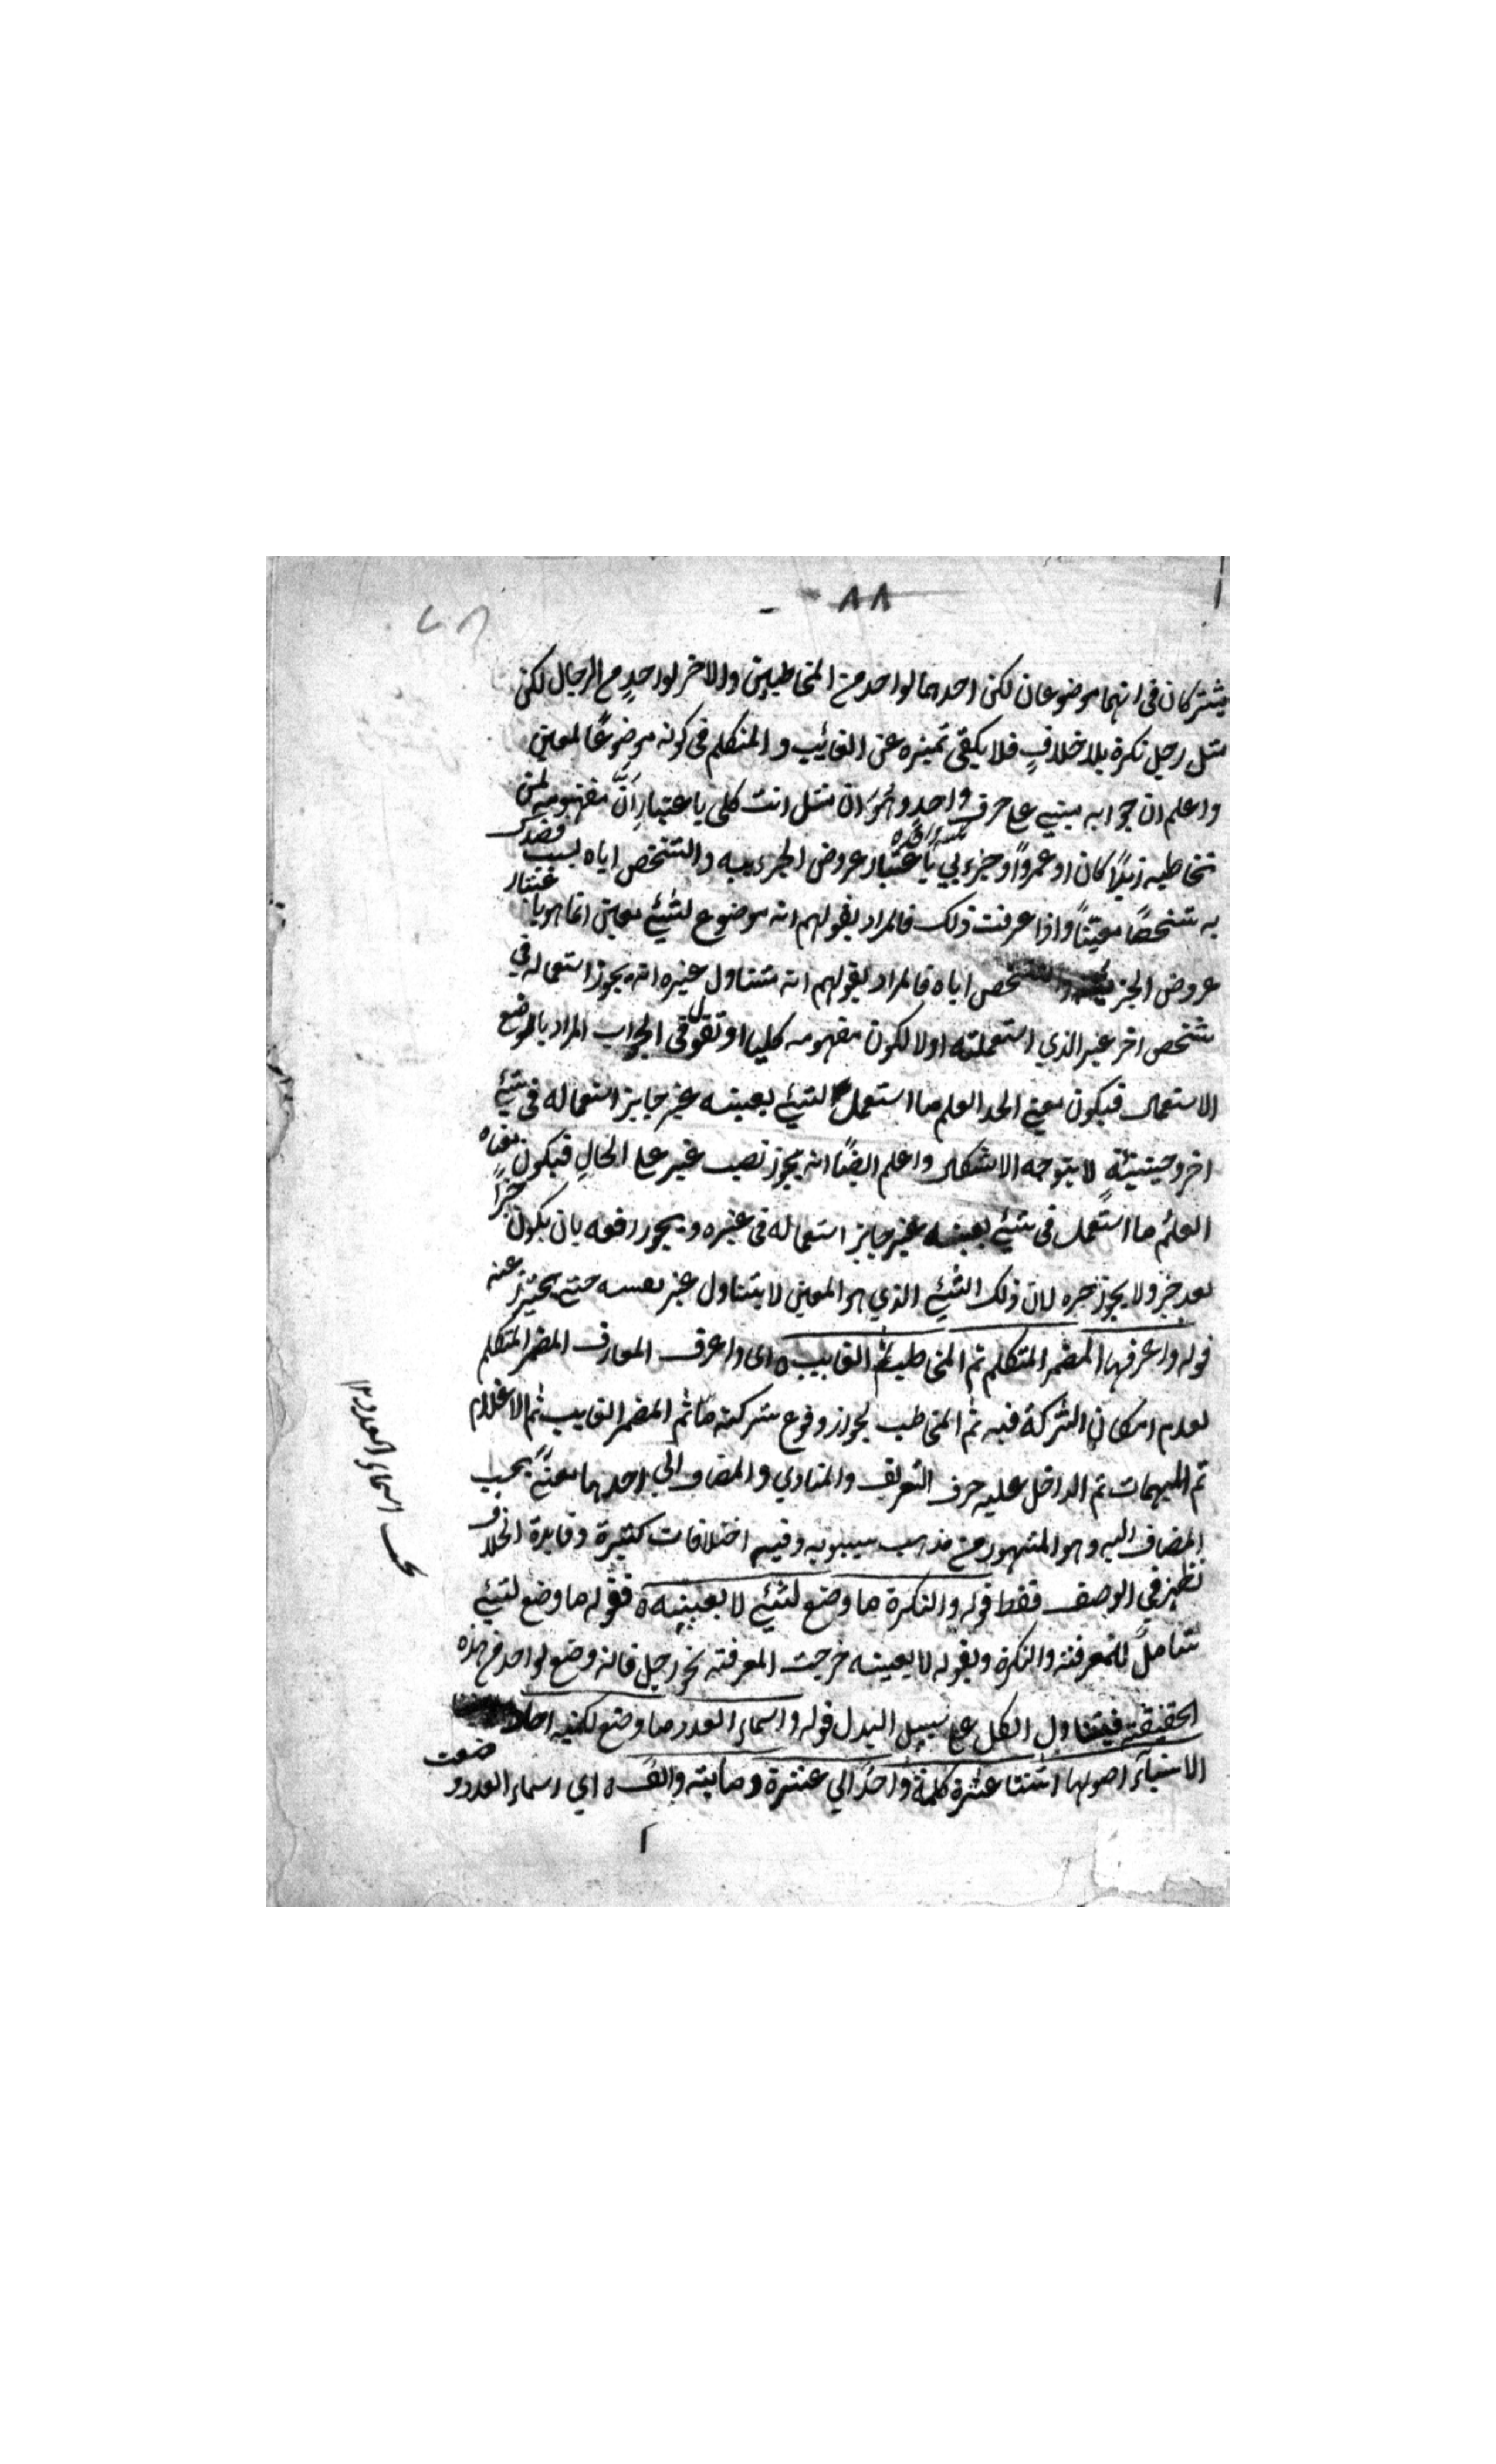 ٨٨
يشتركان في انهما موضوعان لكن احدهما لواحد من المخاطبين والاخر لواحدٍ من الرجال لكن
مثل رجل نكرة بلا خلافٍ فلا يكفي تميزه عن الغائب والمتكلم في كونه موضوعًا لمعين
واعلم ان جوابه مبني على حرف واحدٍ وهُوَ ان مثل انت كلي باعتبارِ انَّ مفهومه لمن
تخاطبه زيدًا كان او عمروًا وجزءي باعتبار عروض الجزءيه والتشخص اياه بسبب قصدك
به شخصًا معينًا واذا عرفت ذلك فالمراد بقولهم انه موضوع لشيء معين انما هو باعتبار
عروض الجزئية والتشخص اياه فالمراد بقولهم انه متناول غيره انه يجوز استعماله في
شخص اخر غير الذي استعملته اولا لكون مفهومه كليا او تقول في الجواب المراد بالوضع
الاستعمال فيكون معنى الحد العلم ما استعمل لشيء بعينه غير جايز استعماله في شيء
اخر وحينئذٍ لا يتوجه الاشكال واعلم ايضًا انه يجوز نصب غير على الحالِ فيكون معناه
العلم ما استعمل في شيء بعينه غير جايز استعماله في غيره ويجوز رفعه بان يكون خبرًا
بعد خبر ولا يجوز جره لان ذلك الشيء الذي هو المعين لا يتناول غير نفسه حتى يحترز عنه
قوله واعرفها المضمر المتكلم ثم المخاطب ثم الغايب ه اى واعرف المعارف المضمر المتكلم
لعدم امكان الشركة فيه ثم المخاطب لجواز وقوع شركته ما ثم المضمر الغايب ثم الاعلام
ثم المبهمات ثم الداخل عليه حرف التعريف والمنادي والمضاف الي احدهما معنًى بحسب
المضاف اليه وهو المشهور من مذهب سيبويه وفيه اختلافات كثيرة وفايدة الخلاف
تظهر في الوصف فقط قوله والنكرة ما وضع لشيء لا بعينه ه فقوله ما وضع لشيء
شامل للمعرفة والنكرة وبقوله لا بعينه خرجت المعرفة نحو رجل فانه وضع لواحد من هذه
الحقيقة فيتناول الكل على سبيل البدل قوله واسماء العدد ما وضع لكمية احاد
الاشياء اصولها اثنتا عشرة كلمة واحدٌ الي عشرة ومايته والف ه اي اسماء العدد وضعت
اسماء العدد